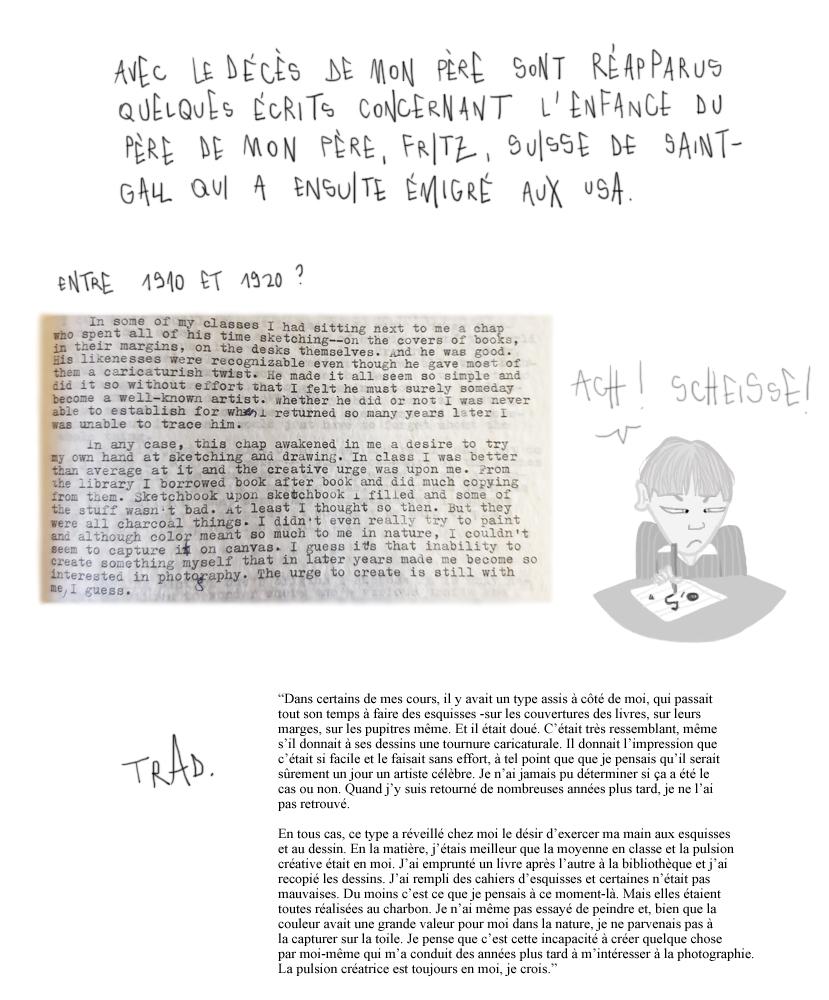 AVEC LE DÉCÈS DE MON PÈRE SONT RÉAPPARUS
QUELQUES ÉCRITS CONCERNANT L'ENFANCE DU
PÈRE DE MON PÈRE, FRITZ, SUISSE DE SAINT-
GALL QUI A ENSUITE ÉMIGRÉ AUX USA.
ENTRE 1910 ET 1920 ?
In some of my classes I had sitting next to me a chap
who spent all of his time sketching--on the covers of books,
in their margins, on the desks themselves. And he was good.
His likenesses were recognizable even though he gave most of
them a caricaturish twist. He made it all seem so simple and
did it so without effort that I felt he must surely someday
become a well-known artist. Whether he did or not I was never
able to establish for when I returned so many years later I
was unable to trace him.
In any case, this chap awakened in me a desire to try
my own hand at sketching and drawing. In class I was better
than average at it and the creative urge was upon me. From
the library I borrowed book after book and did much copying
from them. Sketchbook upon sketchbook I filled and some of
the stuff wasn't bad. At least I thought so then. But they
were all charcoal things. I didn't even really try to paint
and although color meant so much to me in nature, I couldn't
seem to capture it on canvas. I guess it's that inability to
create something myself that in later years made me become so
interested in photography. The urge to create is still with
me, I guess.
ACH! SCHEISSE!
TRAD.
“Dans certains de mes cours, il y avait un type assis à côté de moi, qui passait
tout son temps à faire des esquisses -sur les couvertures des livres, sur leurs
marges, sur les pupitres même. Et il était doué. C’était très ressemblant, même
s’il donnait à ses dessins une tournure caricaturale. Il donnait l’impression que
c’était si facile et le faisait sans effort, à tel point que que je pensais qu’il serait
sûrement un jour un artiste célèbre. Je n’ai jamais pu déterminer si ça a été le
cas ou non. Quand j’y suis retourné de nombreuses années plus tard, je ne l’ai
pas retrouvé.
En tous cas, ce type a réveillé chez moi le désir d’exercer ma main aux esquisses
et au dessin. En la matière, j’étais meilleur que la moyenne en classe et la pulsion
créative était en moi. J’ai emprunté un livre après l’autre à la bibliothèque et j’ai
recopié les dessins. J’ai rempli des cahiers d’esquisses et certaines n’était pas
mauvaises. Du moins c’est ce que je pensais à ce moment-là. Mais elles étaient
toutes réalisées au charbon. Je n’ai même pas essayé de peindre et, bien que la
couleur avait une grande valeur pour moi dans la nature, je ne parvenais pas à
la capturer sur la toile. Je pense que c’est cette incapacité à créer quelque chose
par moi-même qui m’a conduit des années plus tard à m’intéresser à la photographie.
La pulsion créatrice est toujours en moi, je crois.”